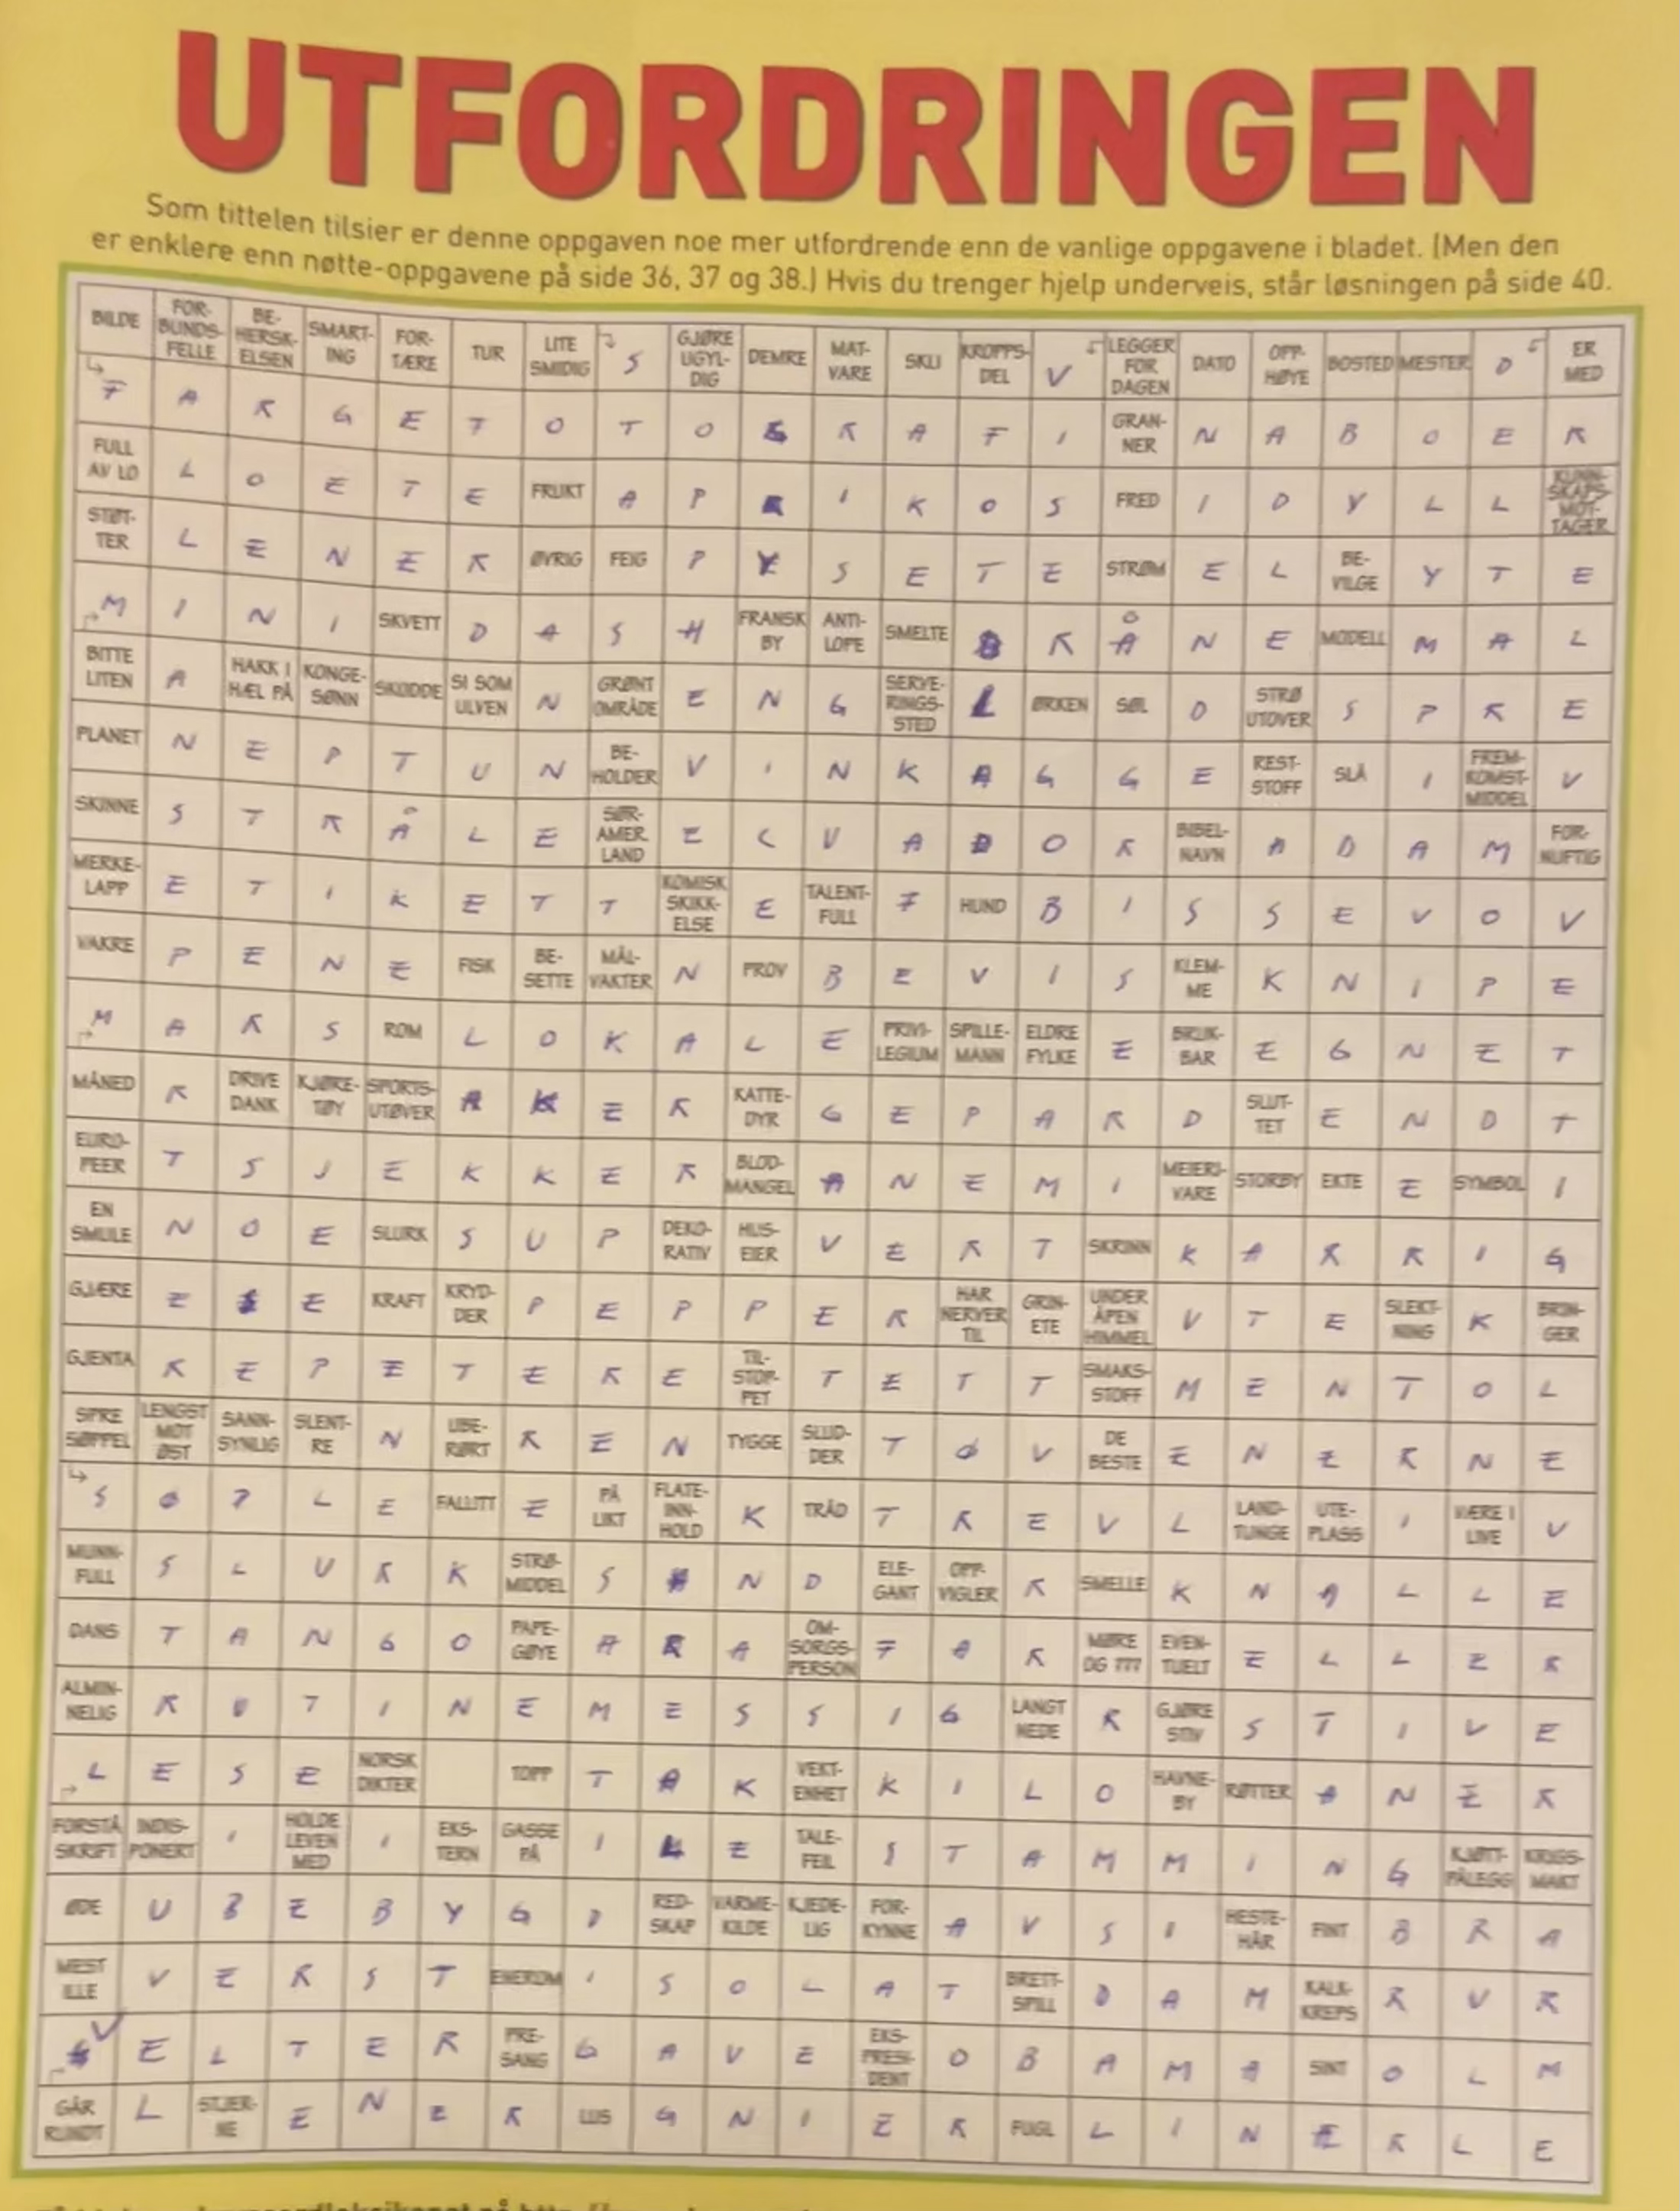 UTFORDRINGEN
Som tittelen tilsier er denne oppgaven noe mer utfordrende enn de vanlige oppgavene i bladet. (Men den
er enklere enn nøtte-oppgavene på side 36, 37 og 38.) Hvis du trenger hjelp underveis, står løsningen på side 40.
BILDE FOR-BUNDS-FELLE BE-HERSK-ELSEN SMART-ING FOR-TÆRE TUR LITE SMIDIG S GJØRE UGYL-DIG DEMRE MAT-VARE SKLI KROPPS-DEL V LEGGER FOR DAGEN DATO OPP-HØYE BOSTED MESTER D ER MED
F A R G E F O T O G R A F I GRAN-NER N A B O E R
FULL AV LO L O E T E FRUKT A P R I K O S FRED I D Y L L KUNN-SKAPS-MOT-TAGER
STØT-TER L E N E R ØVRIG FEIG P Y S E T E STRØM E L BE-VILGE Y T E
M I N I SKVETT D A S H FRANSK BY ANTI-LOPE SMELTE B R Å N E MODELL M A L
BITTE LITEN A HAKK I HÆL PÅ KONGE-SØNN SKODDE SI SOM ULVEN N GRØNT OMRÅDE E N G SERVE-RINGS-STED L ØRKEN SØL O STRØ UTOVER S P R E
PLANET N E P T U N BE-HOLDER V I N K A G G E REST-STOFF SLÅ I FREM-KOMST-MIDDEL V
SKINNE S T R Å L E SØR-AMER. LAND E C U A D O R BIBEL-NAVN A D A M FOR-NUFTIG
MERKE-LAPP E T I K E T T KOMISK SKIKK-ELSE E TALENT-FULL F HUND B I S S E V O V
VAKRE P E N E FISK BE-SETTE MÅL-VAKTER N PROV B E V I S KLEM-ME K N I P E
M A R S ROM L O K A L E PRIVI-LEGIUM SPILLE-MANN ELDRE FYLKE E BRUK-BAR E G N E T
MÅNED R DRIVE DANK KJØRE-TØY SPORTS-UTØVER A K E R KATTE-DYR G E P A R D SLUT-TET E N D T
EURO-PEER T S J E K K E R BLOD-MANGEL A N E M I MEIERI-VARE STORBY EKTE E SYMBOL I
EN SMULE N O E SLURK S U P DEKO-RATIV HUS-EIER V E R T SKRINN K A R R I G
GJÆRE E S E KRAFT KRYD-DER P E P P E R HAR NERVER TIL GRIN-ETE UNDER ÅPEN HIMMEL U T E SLEKT-NING K BRIN-GER
GJENTA R E P E T E R E TIL-STOP-PET T E T T SMAKS-STOFF M E N T O L
SPRE SØPPEL LENGST MOT ØST SANN-SYNLIG SLENT-RE N UBE-RØRT R E N TYGGE SLUD-DER T Ø V DE BESTE E N E R N E
S Ø P L E FALLITT E PÅ LIKT FLATE-INN-HOLD K TRÅD T R E V L LAND-TUNGE UTE-PLASS I VÆRE I LIVE V
MUNN-FULL S L U R K STRØ-MIDDEL S A N D ELE-GANT OPP-VIGLER R SMELLE K N A L L E
DANS T A N G O PAPE-GØYE A R A OM-SORGS-PERSON F A R MØRE OG ??? EVEN-TUELT E L L E R
ALMIN-NELIG R U T I N E M E S S I G LANGT NEDE R GJØRE STIV S T I V E
L E S E NORSK DIKTER TOPP T A K VEKT-ENHET K I L O HAVNE-BY RØTTER A N E R
FORSTÅ SKRIFT INDIS-PONERT I HOLDE LEVEN MED I EKS-TERN GASSE PÅ I L E TALE-FEIL S T A M M I N G KJØTT-PÅLEGG KRIGS-MAKT
ØDE U B E B Y G D RED-SKAP VARME-KILDE KJEDE-LIG FOR-KYNNE A V S I HESTE-HÅR FINT B R A
MEST ILLE V E R S T ENEROM I S O L A T BRETT-SPILL D A M KALK-KREPS R U R
V E L T E R PRE-SANG G A V E EKS-PRESI-DENT O B A M A SINT O L M
GÅR RUNDT L STJER-NE E N E R LUS G N I E R FUGL L I N E R L E